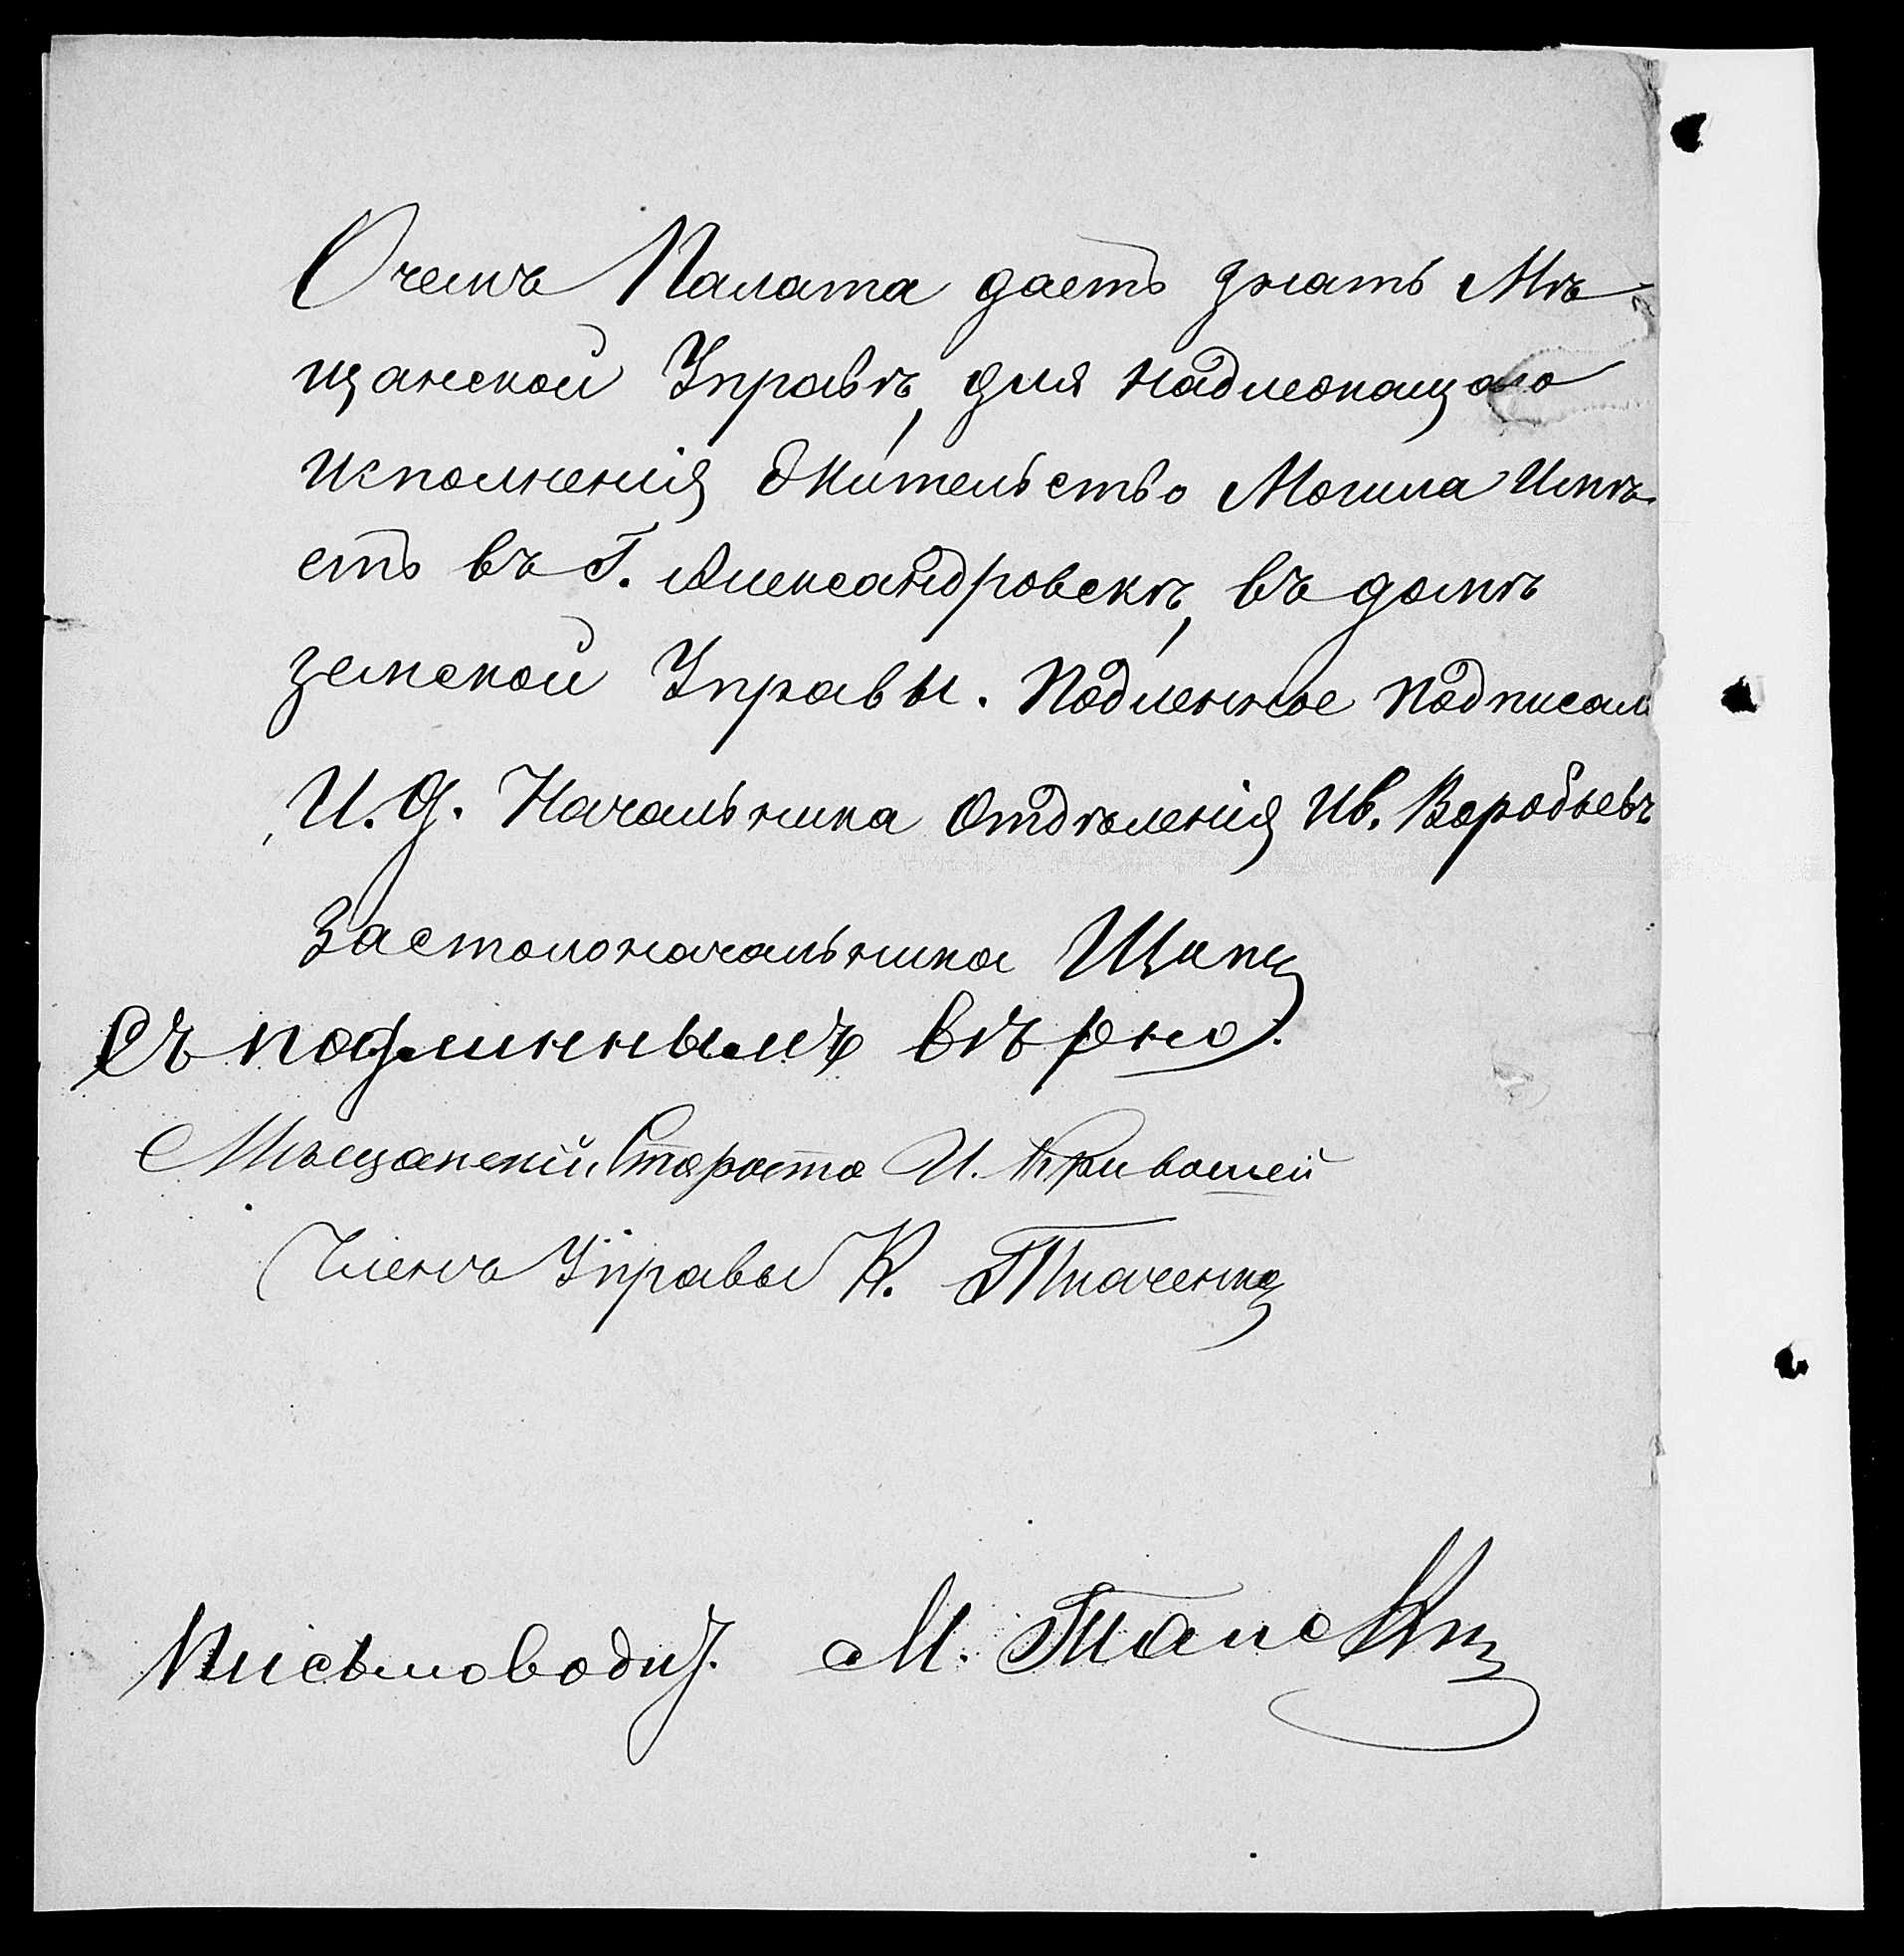 Очемъ Палата даетъ знать Мѣ-
щанской Управѣ, для надлежащаго
исполненія Жительство Могила Имѣ-
етъ въ Г. Александровскѣ, въ домѣ
земской Управы. Подленное подписали
И. Д. Начальника Отдѣленія Ив. Воробьевъ
Застолоначальника
Съ подлиннымъ вѣрно:
Мѣщанскій Староста И. Кривошей
Членъ Управы К. Ткаченко
Письмоводит. М.